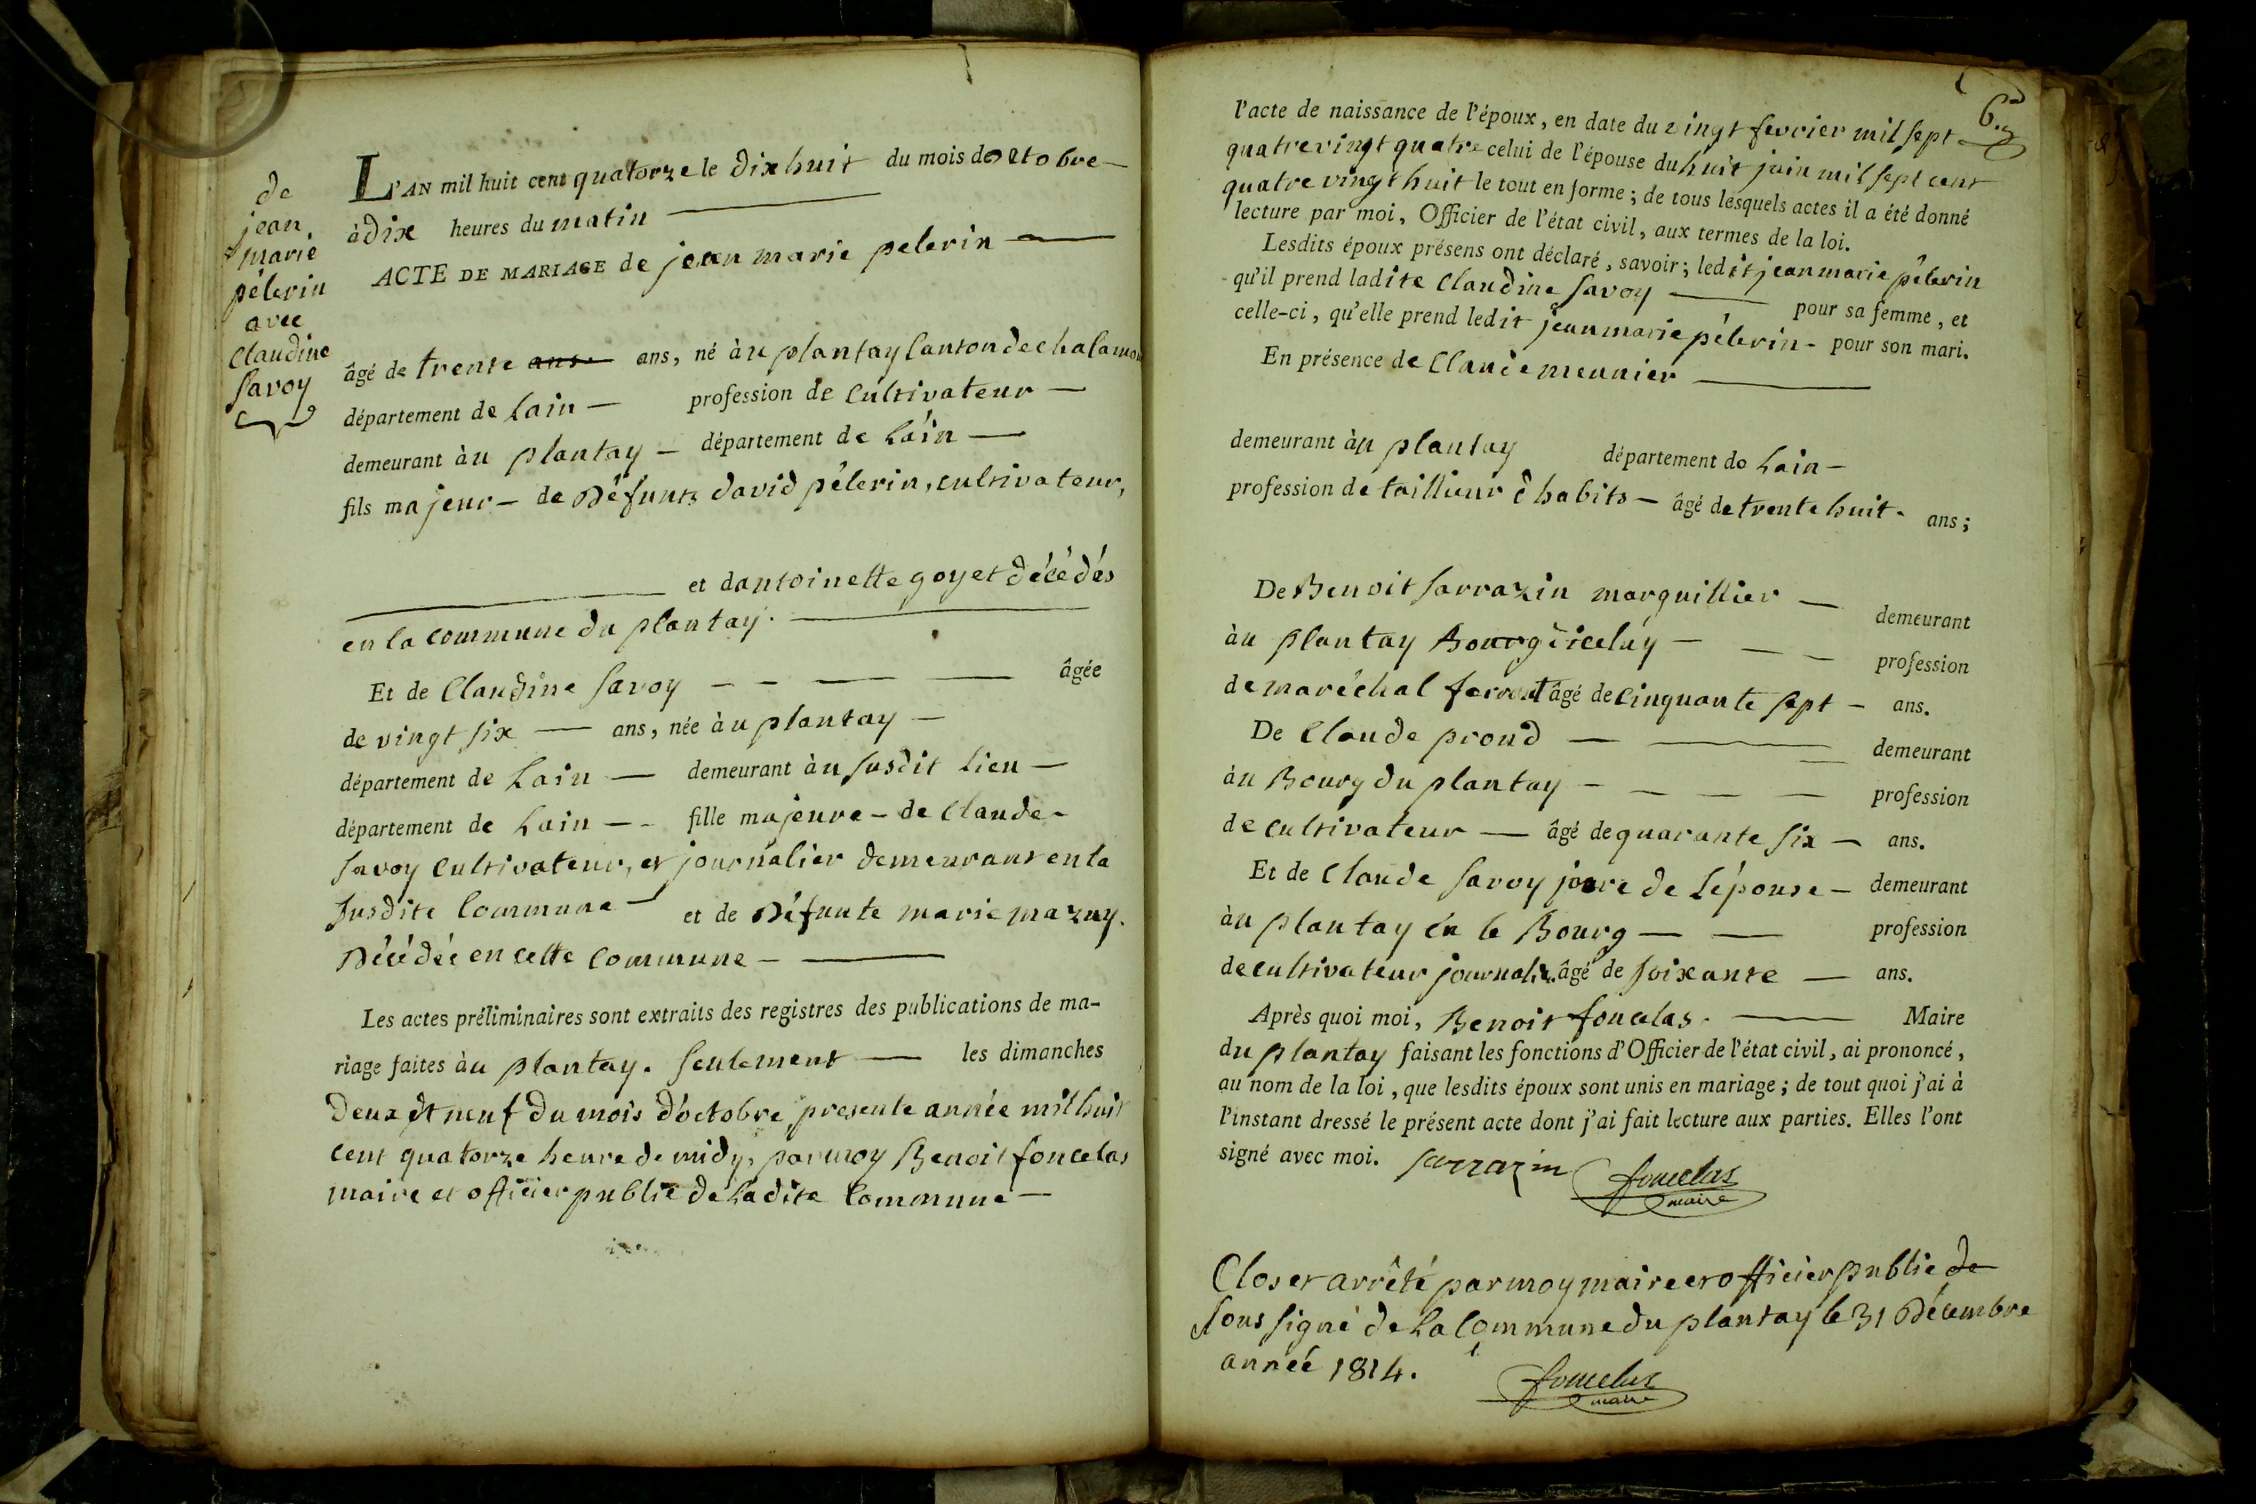 de
jean
marie
pélerin
avec
Claudine
Savoy
L'AN mil huit cent quatorze le dix huit du mois doctobre —
à dix heures du matin —
ACTE DE MARIAGE de jean marie pelerin —
âgé de trente ans ans, né àu plantay Canton de chalamon
département de Lain — profession de Cultivateur —
demeurant àu plantay — département de Lain —
fils majeur — de Défunts david pélerin, cultivateur,
— et dantoinette goyet décédés
en la commune du plantay. —
Et de Claudine Savoy — — — — âgée
de vingt six — ans, née àu plantay —
département de Lain — demeurant àu susdit Lieu —
département de Lain — - fille majeure — de Claude -
Savoy Cultivateur, et journalier demeurant en la
susdite Commune — et de Défunte marie mazuy.
Décédée en cette Commune — —
Les actes préliminaires sont extraits des registres des publications de ma-
riage faites àu plantay. Seulement — les dimanches
deux et neuf du mois d'octobre presente année mil huit
cent quatorze heure de midy, par moy Benoit foncelas
maire et officier public de Ladite Commune —
6.
l'acte de naissance de l'époux, en date du vingt fevrier mil sept
quatre vingt quatre celui de l'épouse du huit juin mil sept cent
quatre vingt huit le tout en forme ; de tous lesquels actes il a été donné
lecture par moi, Officier de l'état civil, aux termes de la loi.
Lesdits époux présens ont déclaré, savoir ; ledit jean marie pélerin
qu'il prend ladite Claudine Savoy — pour sa femme, et
celle-ci, qu'elle prend ledit jean marie pélerin - pour son mari.
En présence de Claude meunier —
demeurant àu plantay département de Lain —
profession de tailleur d'habits — âgé de trente huit - ans ;
De Benoit Sarrazin marguillier — demeurant
àu plantay Bourg d'iceluy — — — profession
de maréchal ferrant âgé de Cinquante sept — ans.
De Claude prond — — demeurant
àu Bourg du plantay — — — — profession
de cultivateur — âgé de quarante six — ans.
Et de Claude Savoy de Lépouse — demeurant
àu plantay en le Bourg — — profession
de cultivateur journalier âgé de soixante — ans.
Après quoi moi, Benoit foncelas. — Maire
du plantay faisant les fonctions d'Officier de l'état civil, ai prononcé,
au nom de la loi, que lesdits époux sont unis en mariage ; de tout quoi j'ai à
l'instant dressé le présent acte dont j'ai fait lecture aux parties. Elles l'ont
signé avec moi. Sarrazin foncelas
maire
Clos et arrêté par moy maire et officier public de
sous signé de La Commune du plantay le 31 Décembre
année 1814.
foncelas
maire